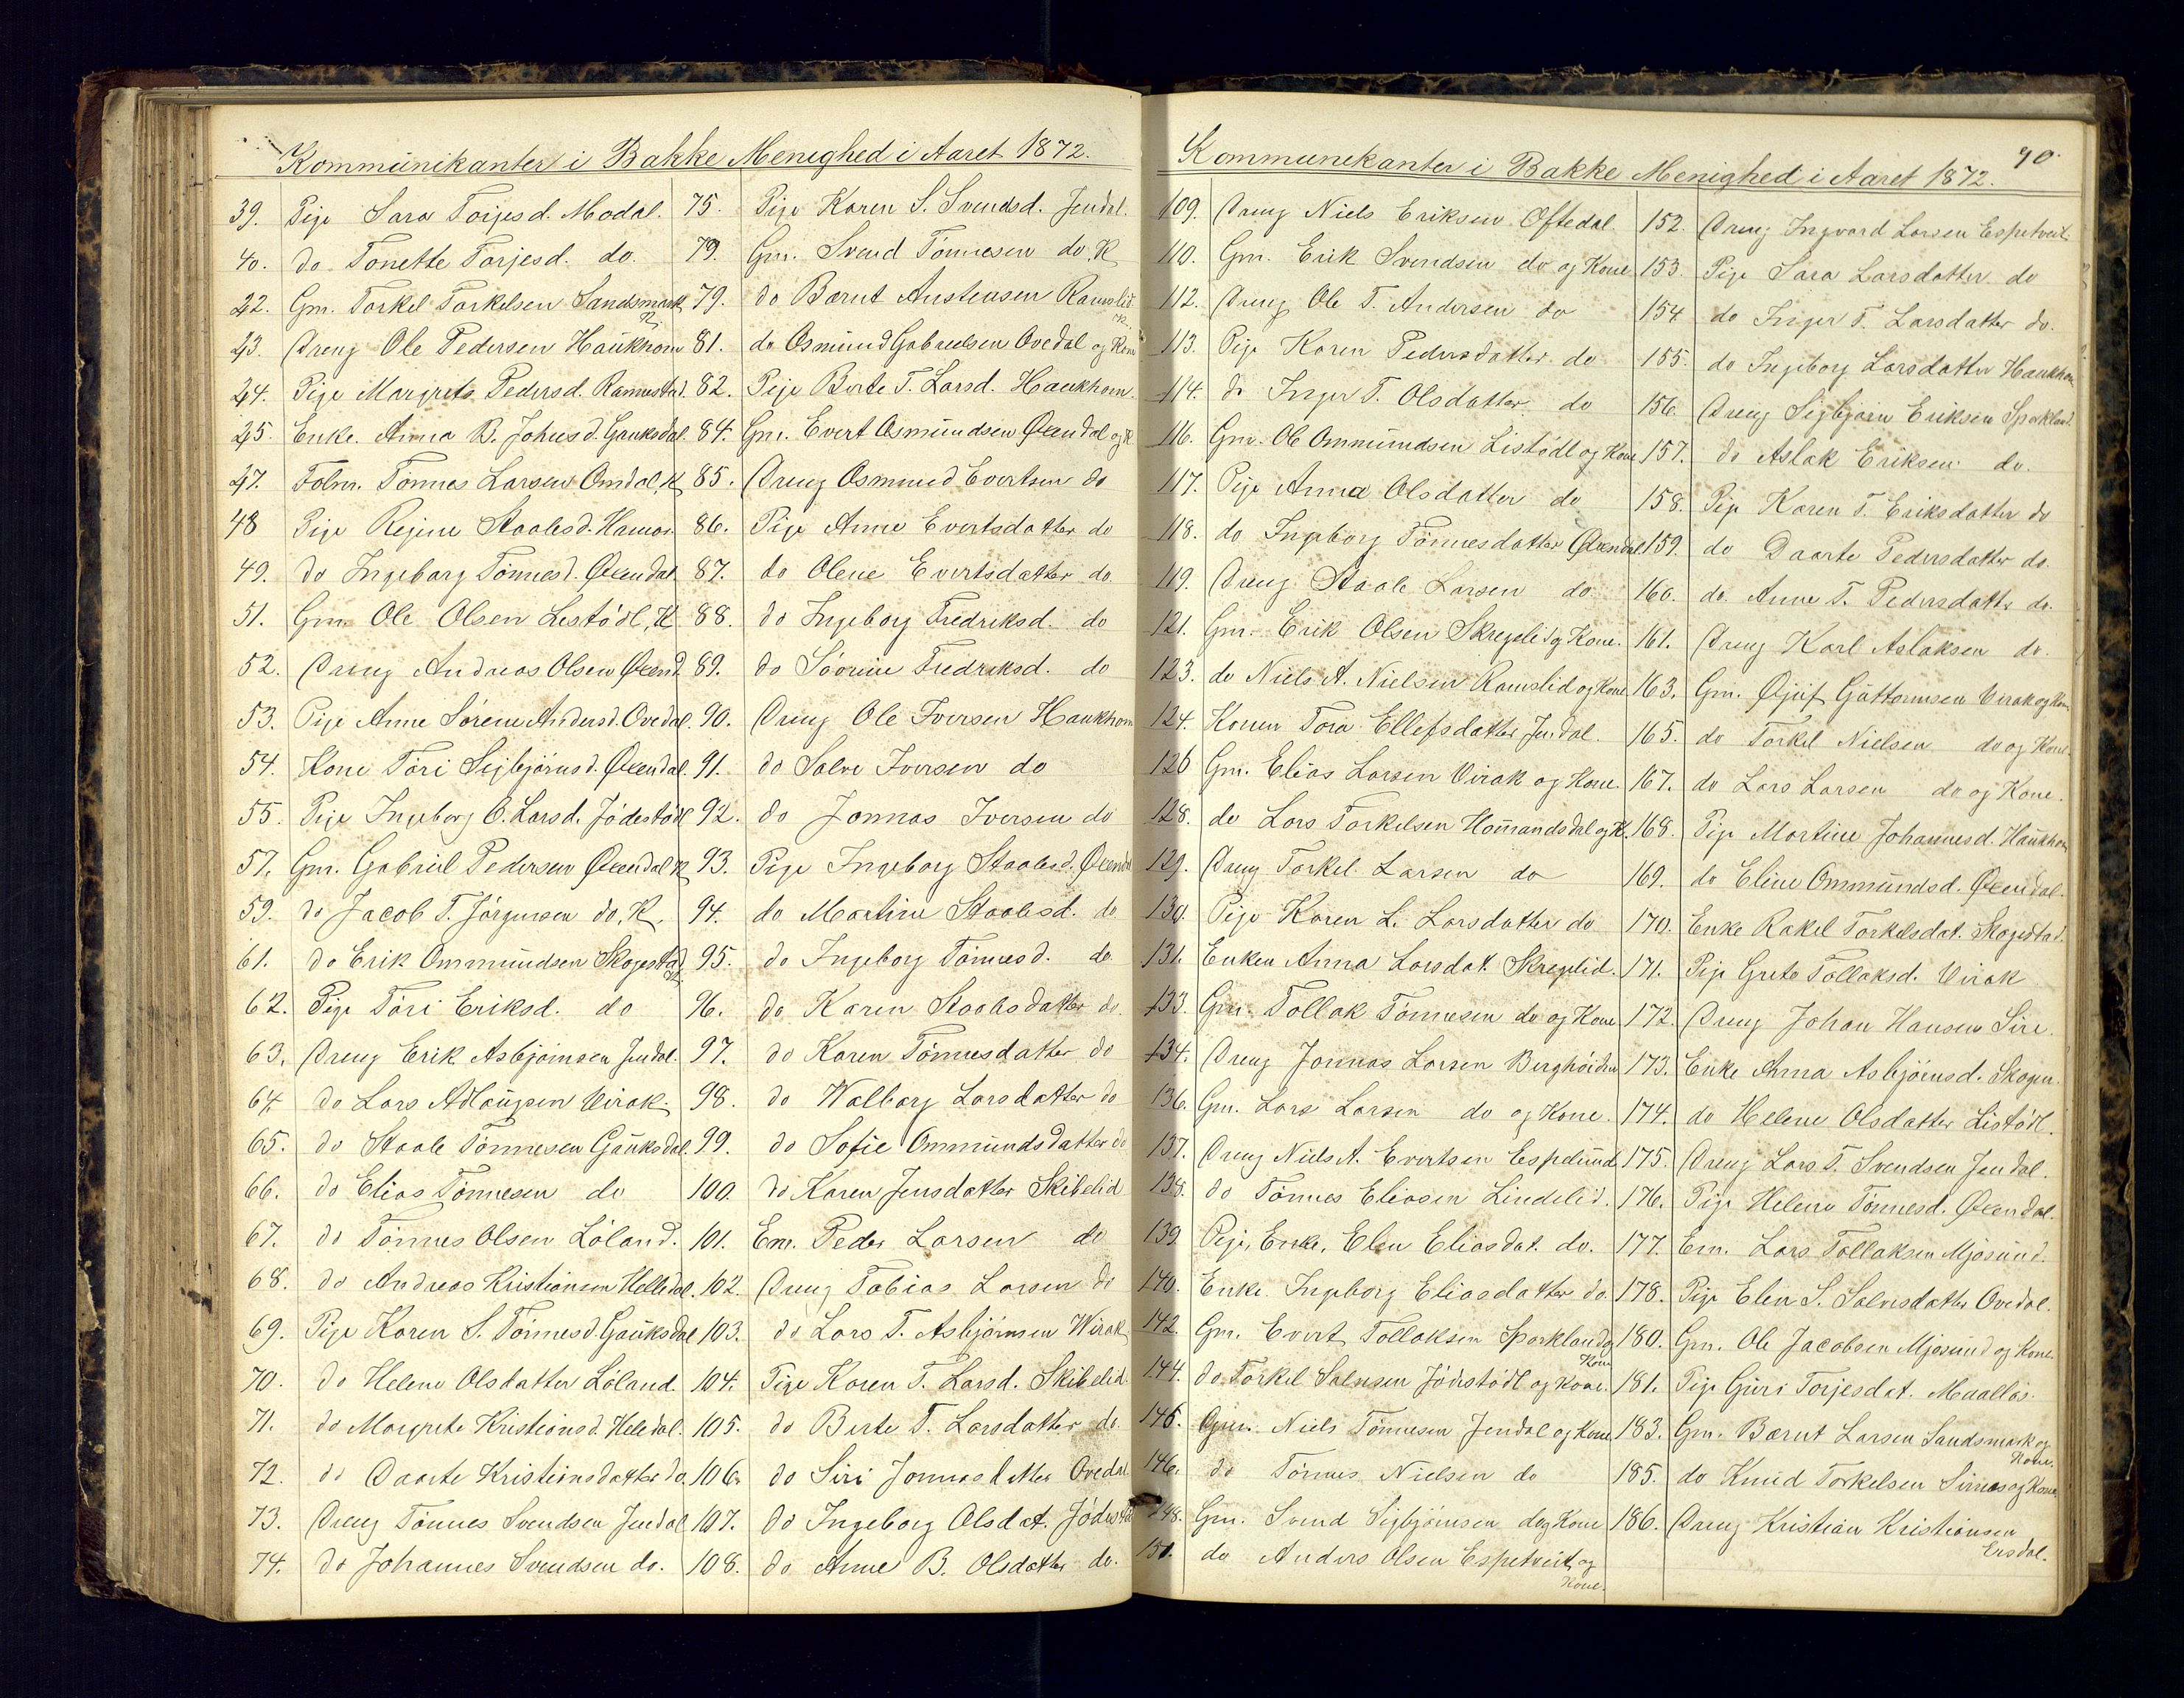 Kommunikanter i Bakke Menighed i Aaret 1872.
39. Pige Sara Torjesd. Modal.
40. do Tonette Torjesd. do.
42. Gm. Torkel Torkelsen Sandsmark K
43. Dreng Ole Pedersen Haukhom
44. Pige Margrete Pedersd. Ramstad.
45. Enke. Anna B. Johnsd. Gauksdal.
47. Folm. Tönnes Larsen Omdal, K
48 Pige Regine Staalesd. Hamar.
49. do Ingeborg Tönnesd. Øxendal
51. Gm. Ole Olsen Listödl, K
52. Dreng Andreas Olsen Øxend.
53. Pige Anne Sörene Andersd. Ovedal.
54. Kone Töri Sigbjörnsd. Øxendal.
55. Pige Ingeborg O. Larsd. Jödestödl
57. Gm. Gabriel Pedersen Øxendal K
59. do Jacob T. Jörgensen do. K.
61. do Erik Ommundsen Skogestad K
62. Pige Töri Eriksd. do
63. Dreng Erik Asbjörnsen Jendal.
64. do Lars Adlougsen Virak.
65. do Staale Tönnesen Gauksdal.
66. do Elias Tönnesen do
67. do Tönnes Olsen Löland.
68. do Andreas Kristiansen Helledal.
69. Pige Karen S. Tönnesd. Gauksdal
70. do Helene Olsdatter Löland.
71. do Margrete Kristiansd. Heledal.
72. do Daarte Kristiansdatter do.
73. Dreng Tönnes Svendsen Jendal
74. do Johannes Svendsen do.
75. Pige Karen S. Svendsd. Jendal.
79. Gm. Svend Tönnesen do. K
79. do Bærnt Austeasen Ramslid K.
81. do Osmund Gabrielsen Ovedal og Kone
82. Pige Berte T. Larsd. Haukhom.
84. Gm. Evert Osmundsen Øxendal og K
85. Dreng Osmund Evertsen do
86. Pige Anne Evertsdatter do
87. do Olene Evertsdatter do.
88. do Ingeborg Fredriksd. do
89. do Sörine Fredriksd. do
90. Dreng Ole Iversen Haukhom
91. do Salve Iversen do
92. do Jonnas Iversen do
93. Pige Ingeborg Staalesd. Øxendal
94. do Martine Staalesd. do
95. do Ingeborg Tönnesd. do.
96. do Karen Staalesdatter do.
97. do Karen Tönnesdatter do
98. do Walborg Larsdatter do
99. do Sofie Ommundsdatter do
100. do Karen Jensdatter Skibelid
101. Em. Peder Larsen do
102. Dreng Tobias Larsen do
103. do Lars T. Asbjörnsen Wirak
104. Pige Karen T. Larsd. Skibelid
105. do Berte T. Larsdatter do.
106. do Siri Jonnasdatter Ovedal
107. do Ingeborg Olsdat. Jödestödl
108. do Anne B. Olsdatter do.
90.
Kommunikanter i Bakke Menighed i Aaret 1872.
109. Dreng Niels Eriksen Oftedal.
110. Gm. Erik Svendsen do og Kone
112. Dreng Ole T. Andersen do
113. Pige Karen Pedersdatter do
114. do Inger T. Olsdatter do
116. Gm. Ole Ommundsen Listödl og Kone
117. Pige Anna Olsdatter do
118. do Ingeborg Tönnesdatter Øxendal
119. Dreng Staale Larsen do
121. Gm. Erik Olsen Skregelid og Kone.
123. do Niels A. Nielsen Ramslid og Kone
124. Konen Tora Ellefsdatter Jendal.
126 Gm. Elias Larsen Virak og Kone.
128. do Lars Torkelsen Homandsdal og K.
129. Dreng Torkel Larsen do
130. Pige Karen L. Larsdatter do
131. Enken Anna Larsdat. Skregelid.
133. Gm. Tollak Tönnesen do og Kone
134. Dreng Jonnas Larsen Berghöiden
136. Gm. Lars Larsen do og Kone.
137. Dreng Niels A. Evertsen Espelund
138. do Tönnes Eliasen Lindelid.
139. Pige, Enke, Elen Eliasdat. do.
140. Enke. Ingeborg Eliasdatter do.
142. Gm. Evert Tollaksen Sparkland og Kone
144. do Torkel Salvesen Jödestödl og Kone.
145. Gm. Niels Tönnesen Jendal og Kone
146. do Tönnes Nielsen do
148. Gm. Svend Sigbjörnsen do og Kone
150. do Anders Olsen Espetveit og Kone.
152. Dreng Ingvard Larsen Espetveit.
153. Pige Sara Larsdatter do
154. do Inger T. Larsdatter do.
155. do Ingeborg Larsdatter Haukhom
156. Dreng Sigbjörn Eriksen Sparkland.
157. do Aslak Eriksen do.
158. Pige Karen T. Eriksdatter do
159. do Daarte Pedersdatter do.
160. do. Anne T. Pedersdatter do.
161. Dreng Karl Aslaksen do.
163. Gm. Guttormsen Virak og Kone.
165. do Torkel Nielsen do og Kone.
167. do Lars Larsen do og Kone.
168. Pige Martine Johannesd. Haukhom
169. do Eline Ommundsd. Øxendal.
170. Enke Rakel Torkelsdat. Skogestad.
171. Pige Grete Tollaksd. Virak
172. Dreng Johan Hansen Sire.
173. Enke Anna Asbjörnsd. Skogen.
174. do Helene Olsdatter Listödl.
175. Dreng Lars T. Svendsen Jendal.
176. Pige Helene Tönnesd. Øxendal.
177. Em. Lars Tollaksen Mjosund.
178. Pige Elen S. Salvesdatter Ovedal.
180. Gm. Ole Jacobsen Mjosund og Kone.
181. Pige Guri Torjesdat.
183. Gm. Bærnt Larsen Sandsmark og Kone.
185. do Knud Torkelsen Sirnes og Kone
186. Dreng Kristian Kristiansen Ersdal.